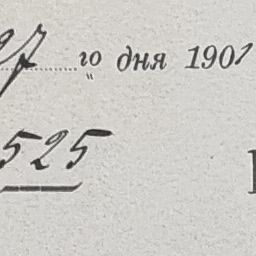 27 го дня 1901
525